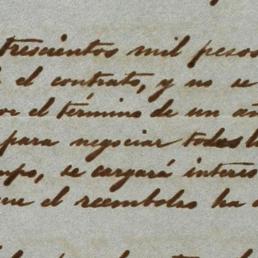 trescientos mil pesos
el contrato, y no se
el término de un añ
para negociar todos l
mpo, se cargará interes
que el reembolso ha